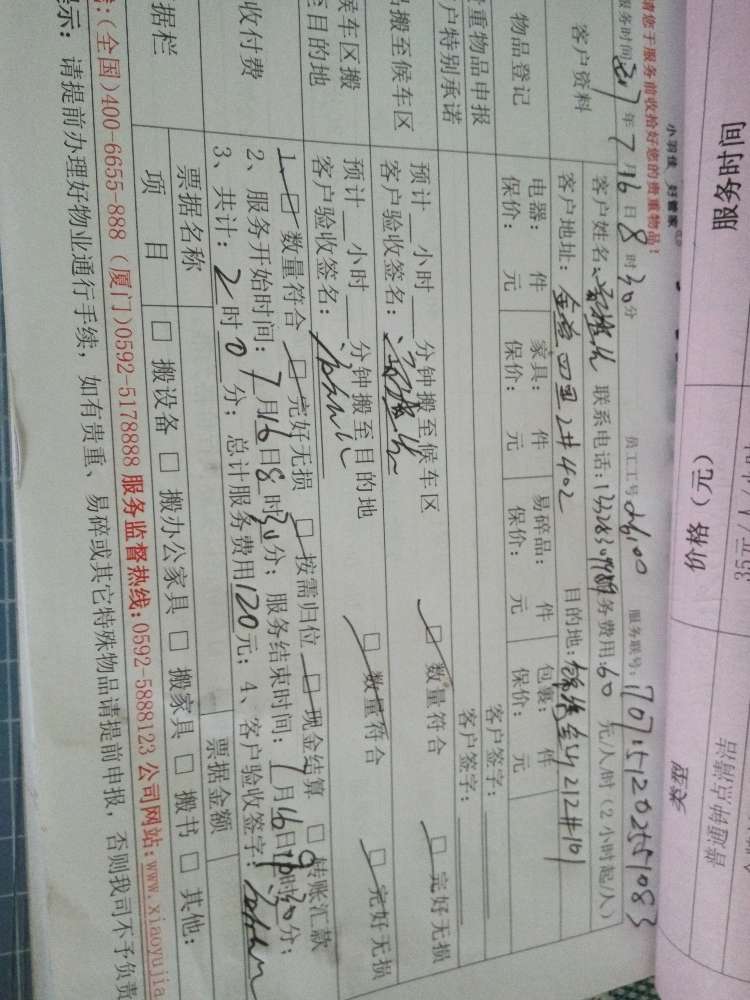 服务时间
价格（元）
35元/
普通钟点清洁
小羽佳 好管家
请您于服务前收拾好您的贵重物品！
服务时间 2017年7月16日8时30分 员工工号 服务联号：170715120255 1083
客户资料
客户姓名： 联系电话： 服务费用：60元/人/时（2小时起/人）
客户地址： 2#402 目的地： 212#101
物品登记
电器： 件 家具： 件 易碎品： 件 包裹： 件
保价： 元 保价： 元 保价： 元 保价： 元
贵重物品申报 客户签字：
客户特别承诺 客户签字：
品搬至候车区
预计 小时 分钟搬至候车区 □ 数量符合 □ 完好无损
客户验收签名：
候车区搬至目的地
预计 小时 分钟搬至目的地 □ 数量符合 □ 完好无损
客户验收签名：
收付费
1、□ 数量符合 □ 完好无损 □ 按需归位 □ 现金结算 □ 转账汇款
2、服务开始时间：7月16日8时30分；服务结束时间：7月16日 时30分；
3、共计：2时0分；总计服务费用120元；4、客户验收签字：
据栏
票据名称 票据金额
项 目 □ 搬设备 □ 搬办公家具 □ 搬家具 □ 搬书 □ 其他：
：(全国)400-6655-888 (厦门)0592-5178888 服务监督热线：0592-5888123 公司网站：www.xiaoyujia
示：请提前办理好物业通行手续，如有贵重、易碎或其它特殊物品请提前申报，否则我司不予负责